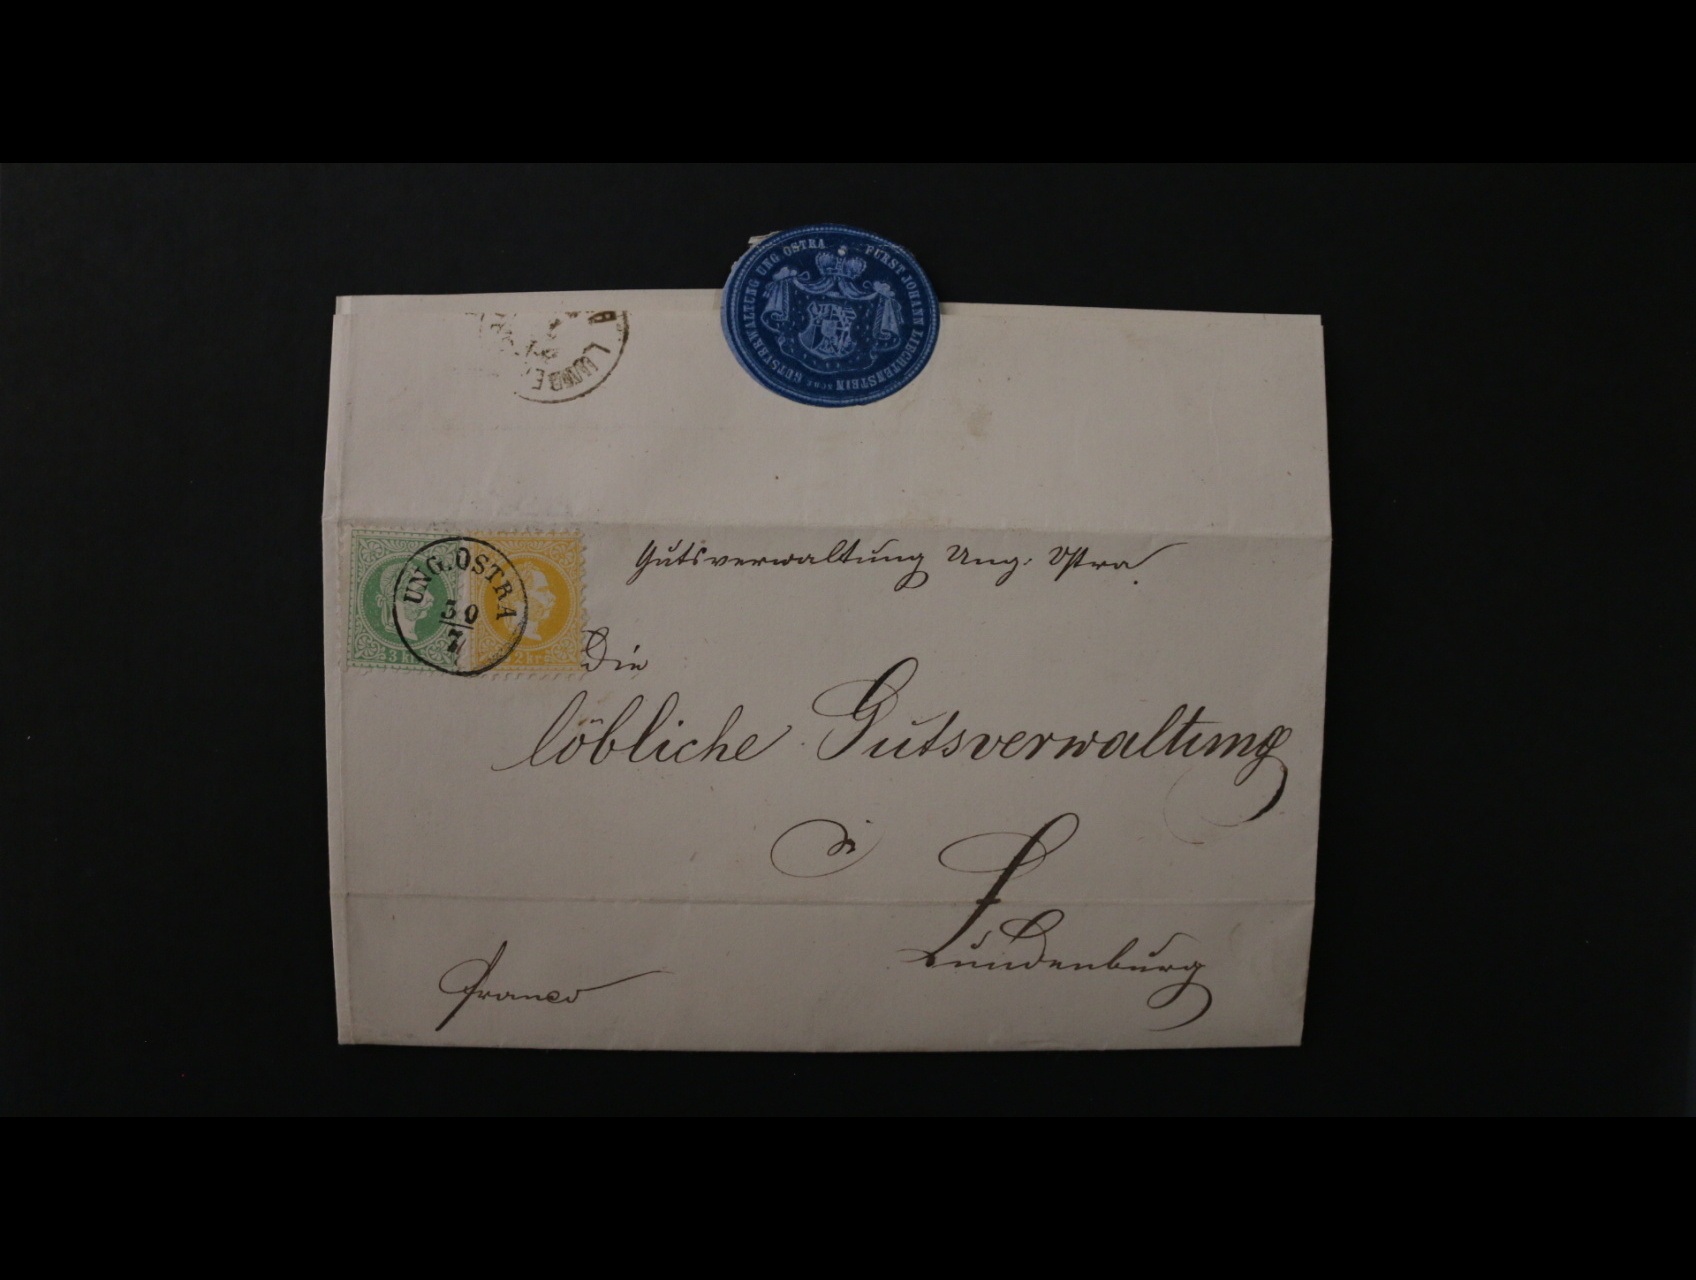 FÜRST JOHANN LIECHTENSTEIN'SCHE GUTSVERWALTUNG UNG OSTRA
LUNDE
Gutsverwaltung Ung. Ostra.
UNG. OSTRA
30
7
3 kr.
2 kr.
Die
löbliche Gutsverwaltung
Lundenburg
franco